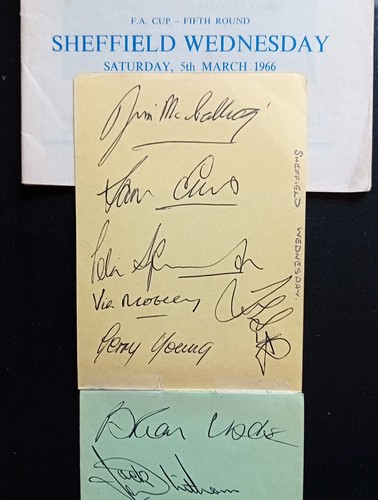 F.A. CUP – FIFTH ROUND
SHEFFIELD WEDNESDAY
SATURDAY, 5th MARCH 1966
Jim McCalliog
SHEFFIELD WEDNESDAY.
Sam Ellis
Vic Mobley
Gerry Young
Brian Usher
Jack Whitham